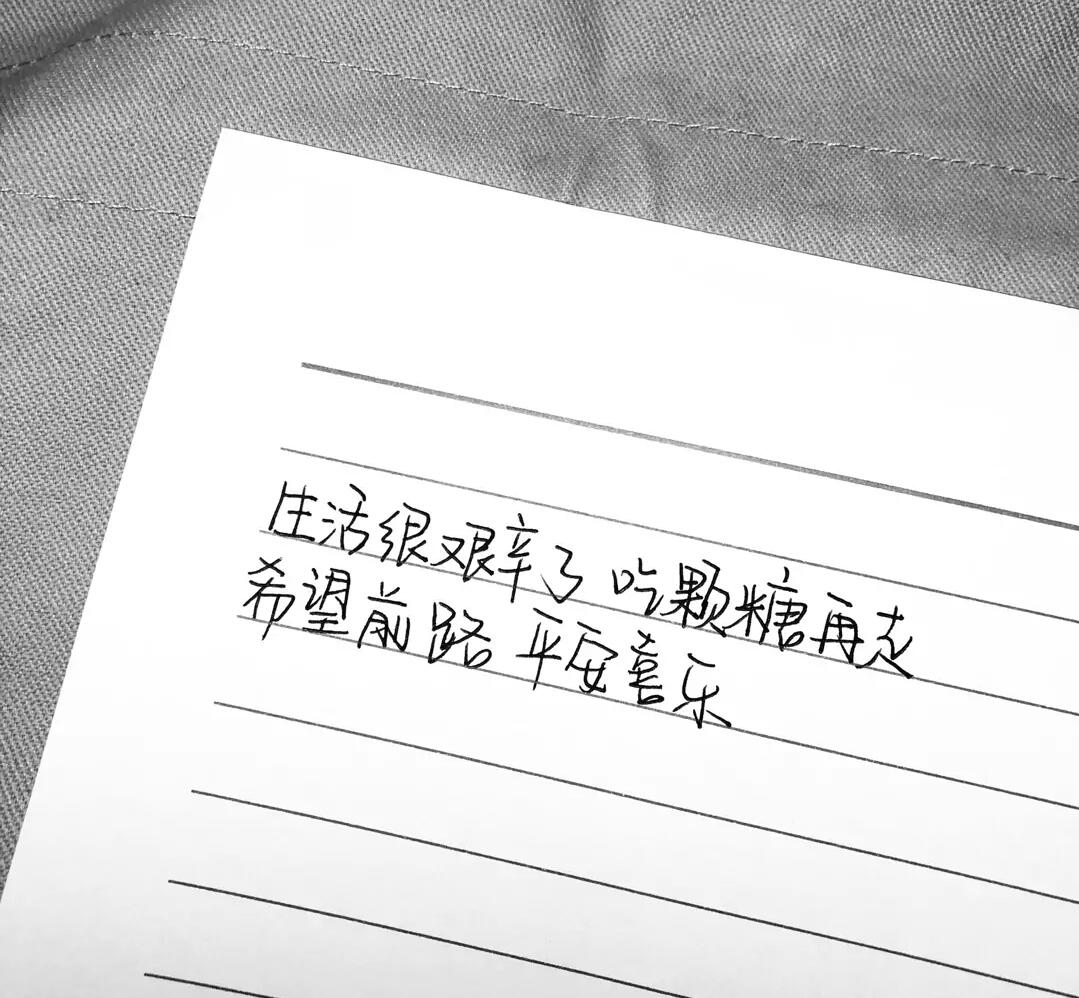 生活很艰辛了 吃颗糖再走
希望前路 平安喜乐